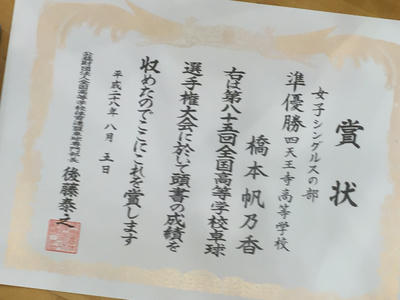 賞状
女子シングルスの部
準優勝 四天王寺高等学校
橋本帆乃香
右は第八十五回全国高等学校卓球
選手権大会に於いて頭書の成績を
収めたのでここにこれを賞します
平成二十八年八月五日
公益財団法人全国高等学校体育連盟卓球専門部長 後藤泰之